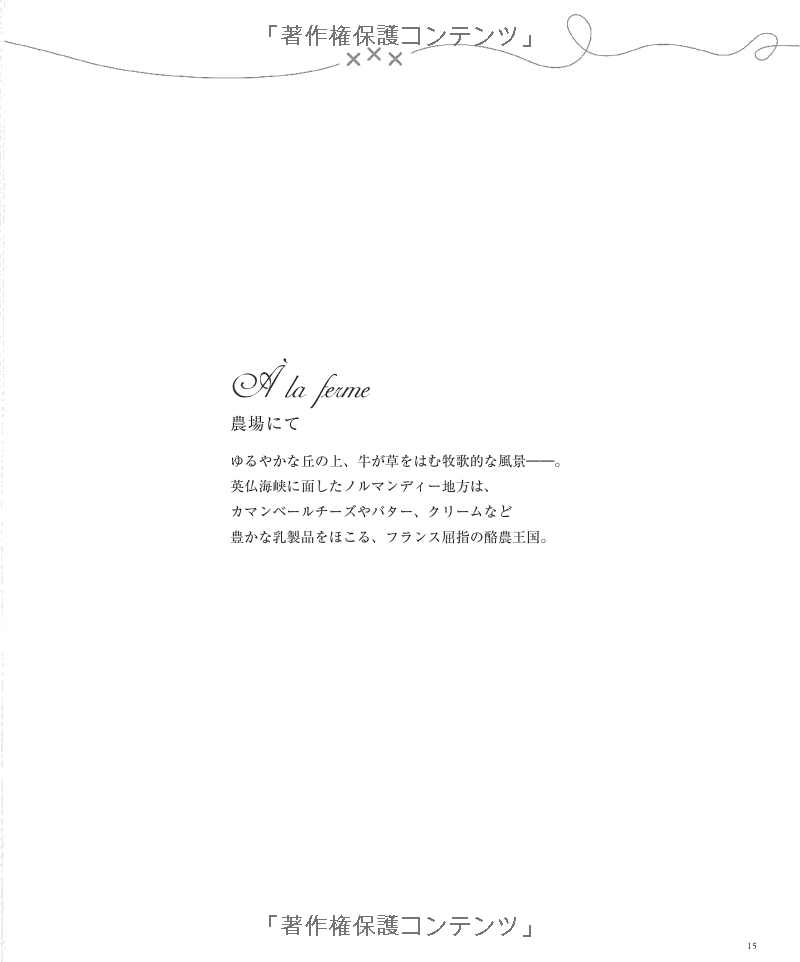 「著作権保護コンテンツ」
À la ferme
農場にて
ゆるやかな丘の上、牛が草をはむ牧歌的な風景――。
英仏海峡に面したノルマンディー地方は、
カマンベールチーズやバター、クリームなど
豊かな乳製品をほこる、フランス屈指の酪農王国。
「著作権保護コンテンツ」
15